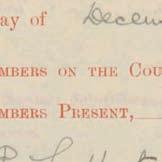 ay of Decem
MBERS ON THE COU
MBERS PRESENT,